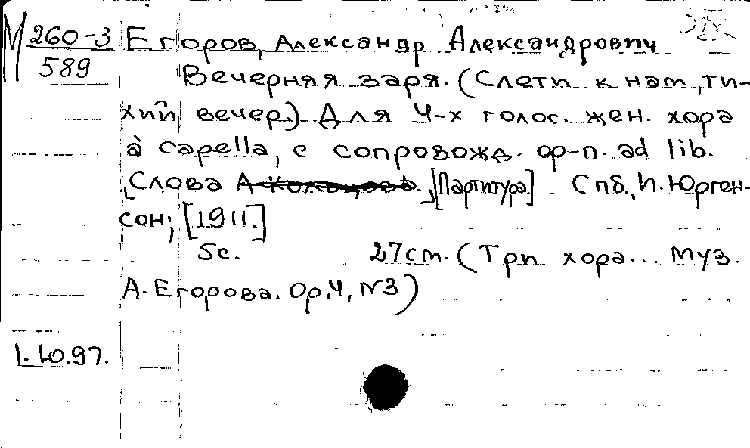 М 260-3 Егоров, Александр Александрович
589 Вечерняя заря. (Слети к нам, ти-
хий вечер.) Для 4-х голос. жен. хора
à capella, с сопровожд. ф-п. ad lib.
[Слова А. Кольцова.] [Партитура]. Спб., И. Юрген-
сон, [1911.]
5с. 27см. (Три хора... муз.
А. Егорова. Op.4, N3)
1.10.97.